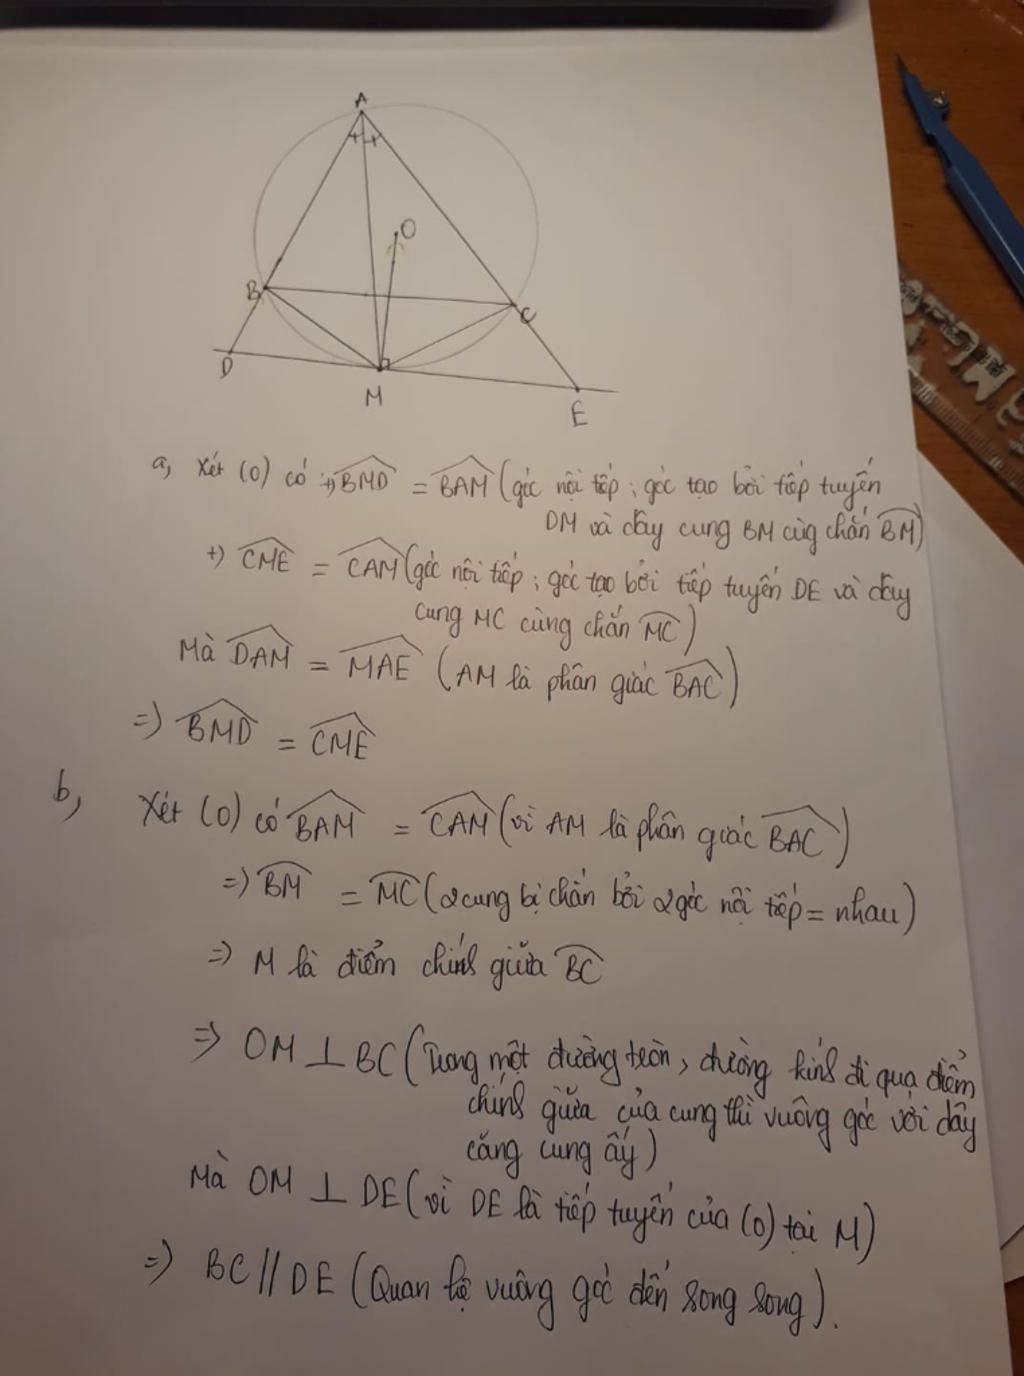 A
O
B
C
D
M
E
a, Xét (O) có +) \widehat{BMD} = \widehat{BAM} (góc nội tiếp ; góc tạo bởi tiếp tuyến
DM và dây cung BM cùg chắn \overset{\frown}{BM})
+) \widehat{CME} = \widehat{CAM} (góc nội tiếp ; góc tạo bởi tiếp tuyến DE và dây
cung MC cùng chắn \overset{\frown}{MC})
Mà \widehat{DAM} = \widehat{MAE} (AM là phân giác \widehat{BAC})
=) \widehat{BMD} = \widehat{CME}
b, Xét (O) có \widehat{BAM} = \widehat{CAM} (vì AM là phân giác \widehat{BAC})
=) \overset{\frown}{BM} = \overset{\frown}{MC} (2 cung bị chắn bởi 2 góc nội tiếp = nhau)
=) M là điểm chính giữa \overset{\frown}{BC}
=> OM ⊥ BC (Trong một đường tròn, đường kính đi qua điểm
chính giữa của cung thì vuông góc với dây
căng cung ấy)
Mà OM ⊥ DE (vì DE là tiếp tuyến của (O) tại M)
=) BC // DE (Quan hệ vuông góc đến song song).